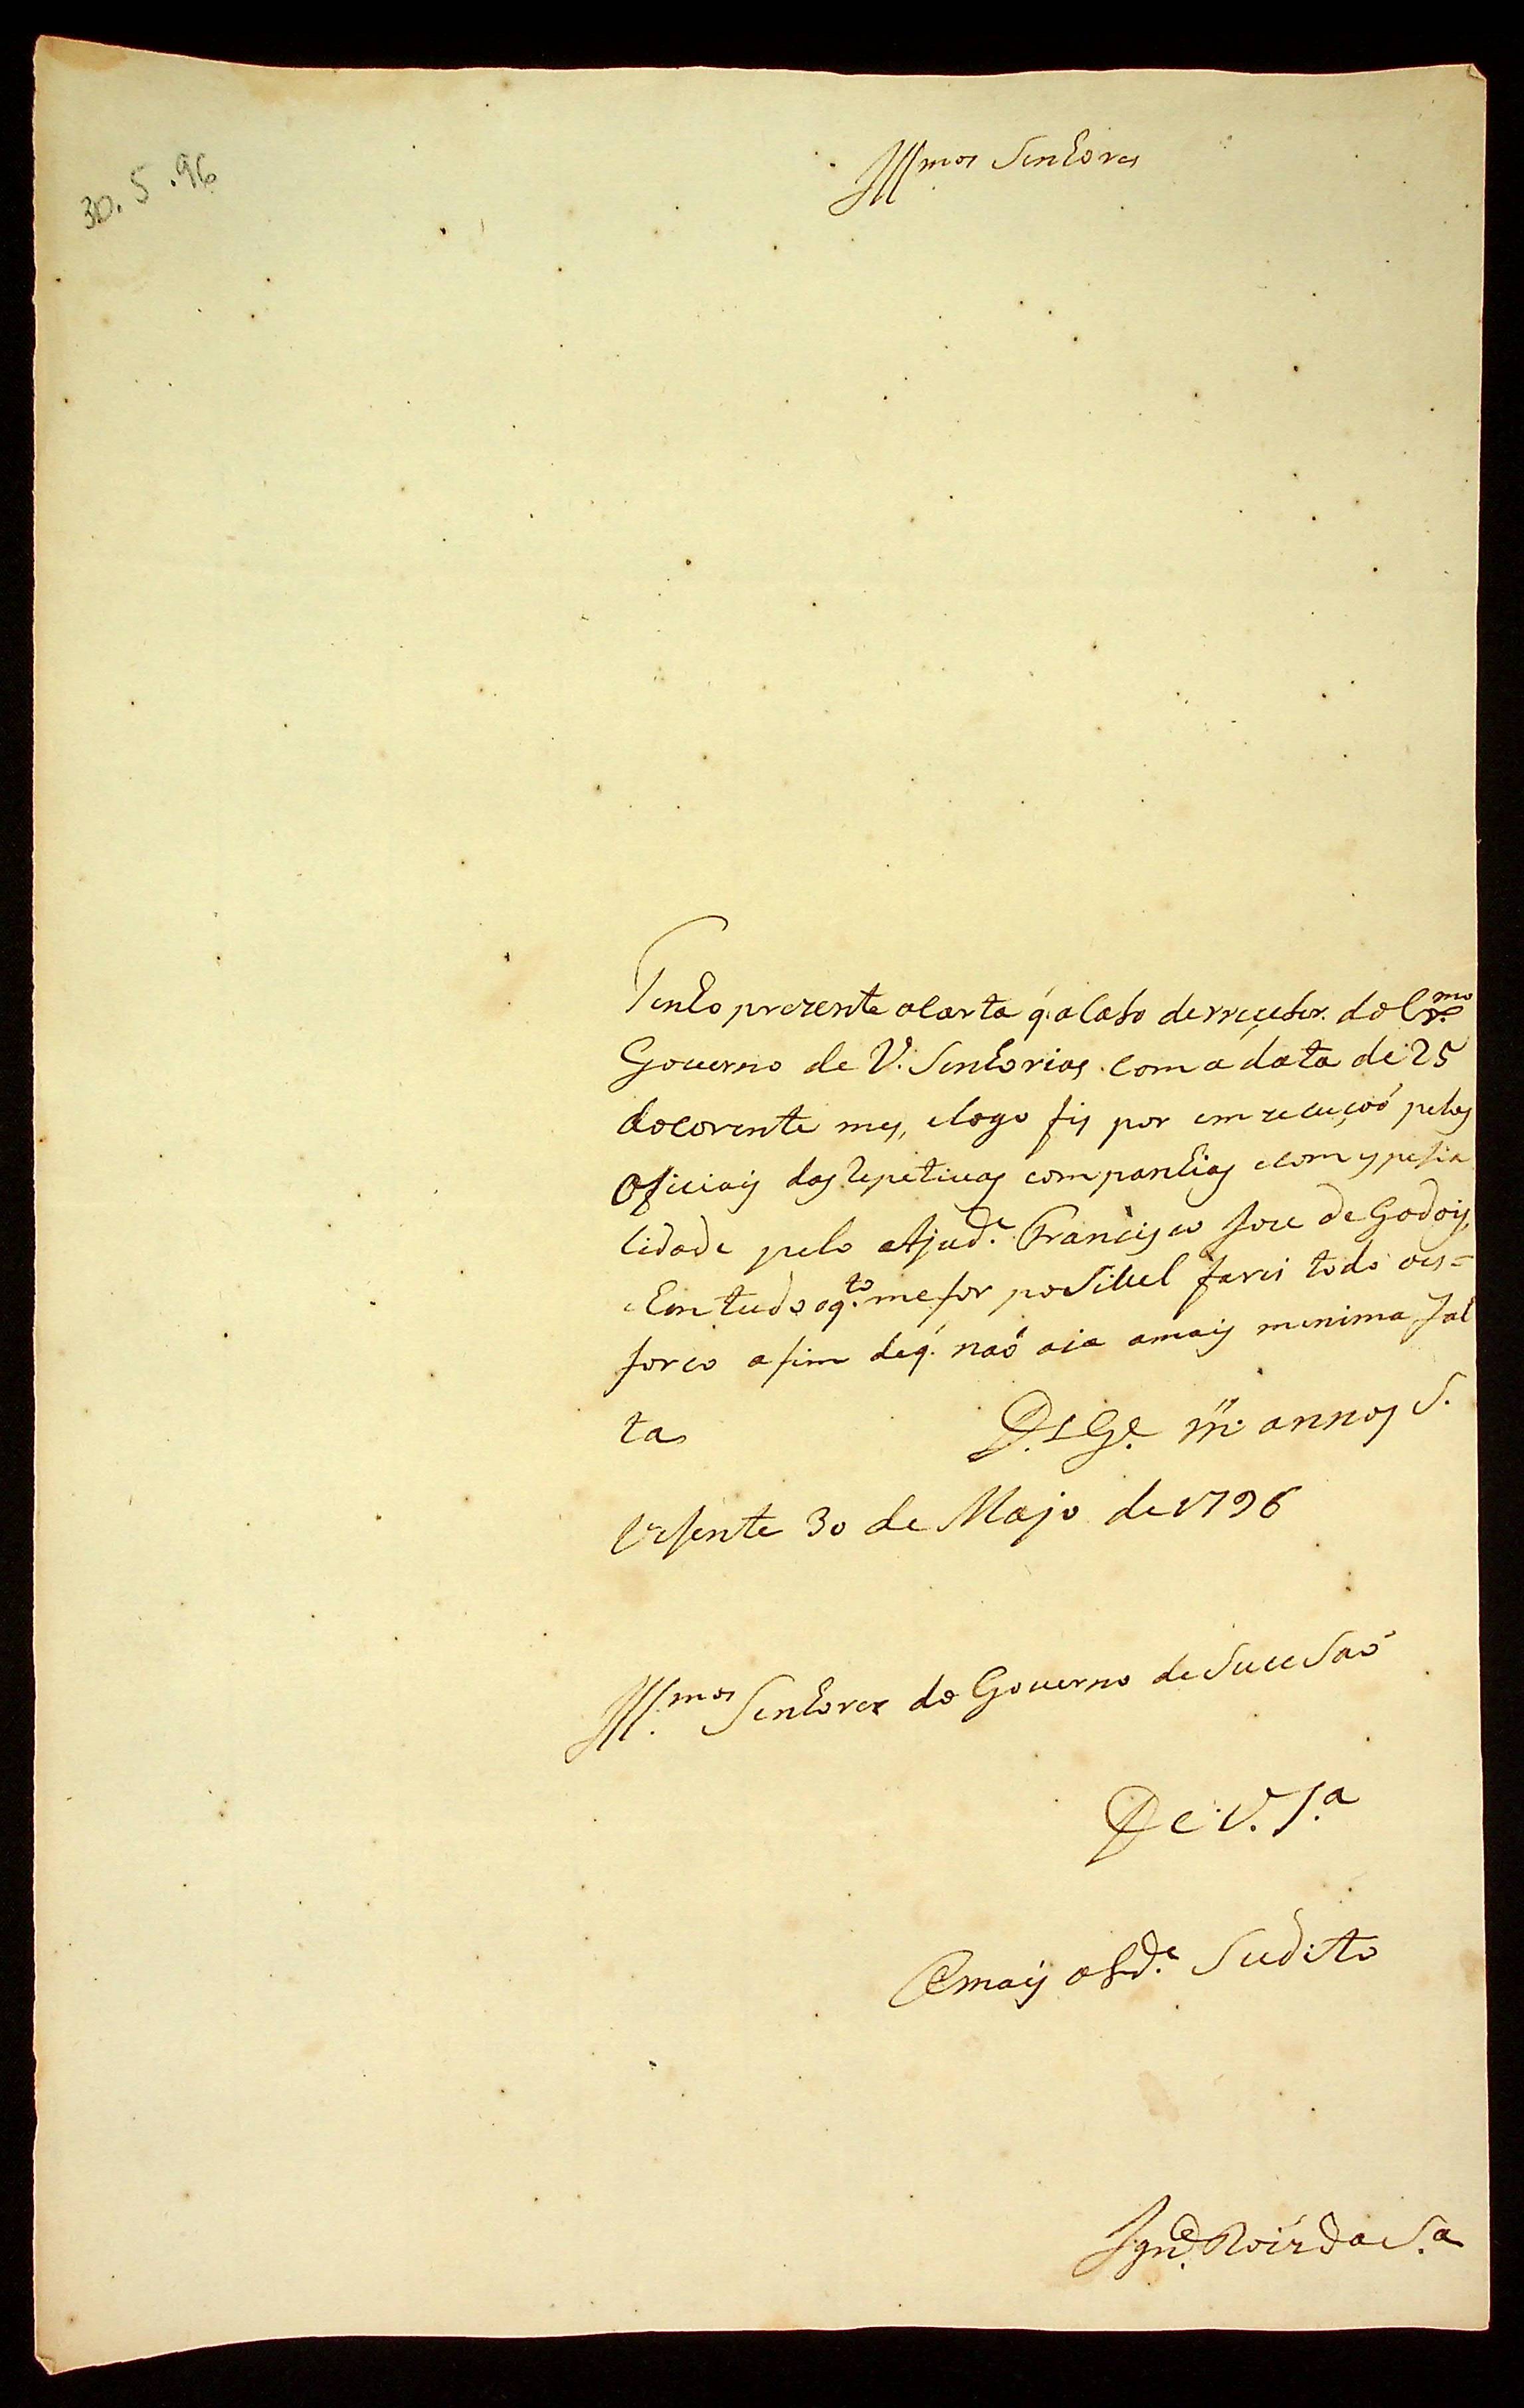 30. 5 .96
Ill.mos Senhores
Tenho prezente acarta q. acabo derreceber. do
Governo de V. Senhorias. com a data de 25
docorente mes, elogo fis por em zecuçoó pelos
Oficiais das Repetivas companhias ecom espesia
lidade pelo Ajud.e Francisco Joze de Godois,
Em tudo oq.to me for poSivel farei todo oes=
forco afim deq. naó aja amais menima fal
ta D.s G.e m. annos S.
30 de Majo de 1796
Ill.mos Senhores do Governo deSuceSaó
De V. S.a
Omais obd.e Sudito
Ign.o Roiz da S.a